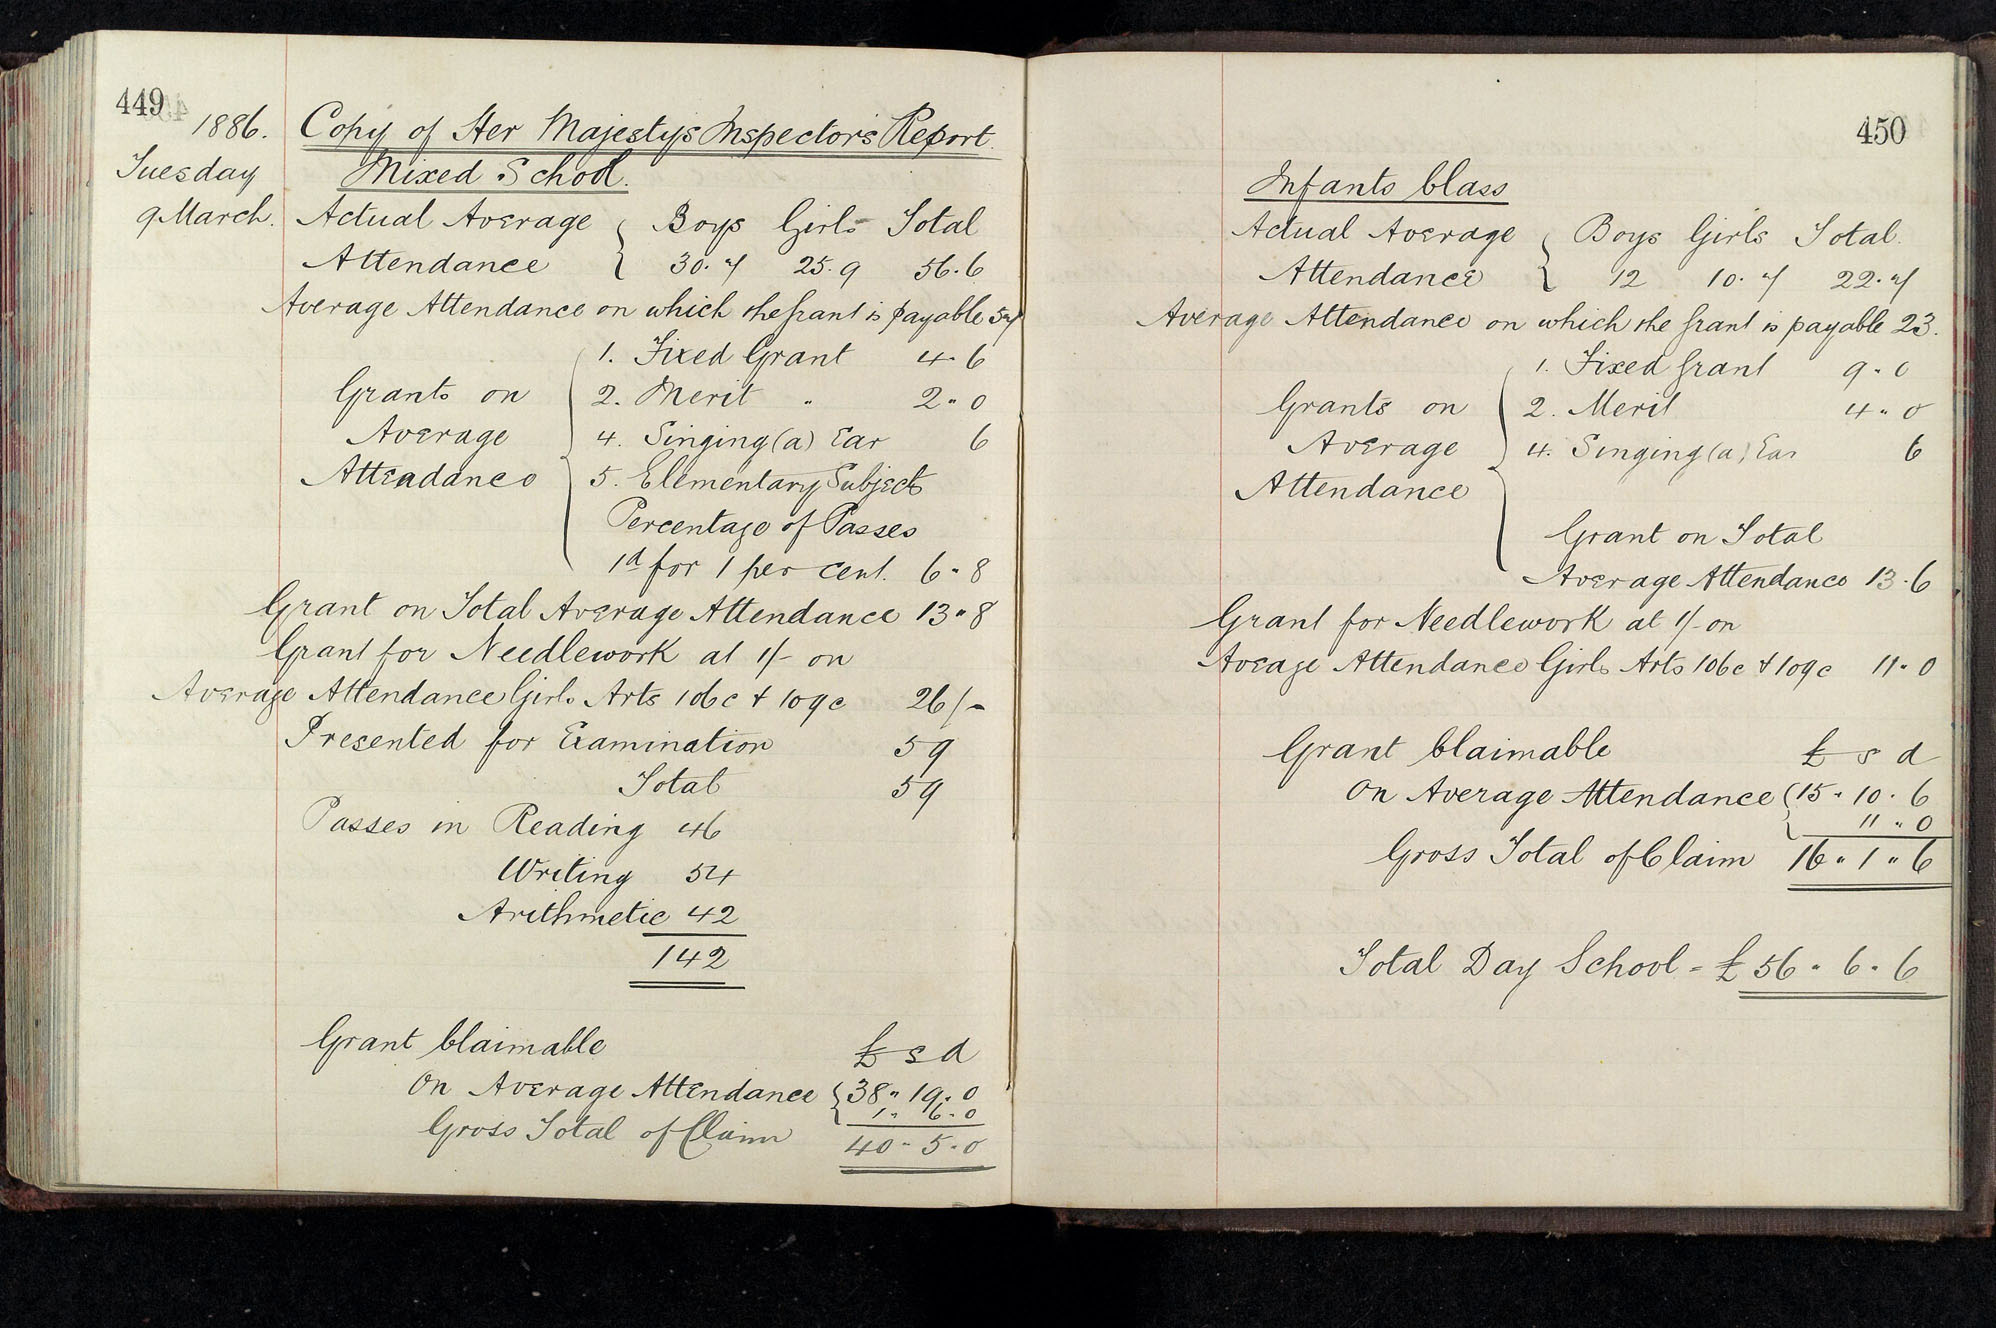 449
1886. Copy of Her Majestys Inspector's Report.
Tuesday Mixed School.
9 March. Actual Average { Boys Girls Total
Attendance { 30.7 25.9 56.6
Average Attendance on which the grant is payable 57
1. Fixed Grant 4.6
Grants on 2. Merit " 2"0
Average 4. Singing (a) Ear 6
Attendance 5. Elementary Subjects
Percentage of Passes
1d for 1 per cent. 6"8
Grant on Total Average Attendance 13"8
Grant for Needlework at 1/- on
Average Attendance Girls Arts 106c & 109c 26/-
Presented for Examination 59
Total 59
Passes in Reading 46
Writing 54
Arithmetic 42
142
Grant Claimable £ s d
On Average Attendance { 38" 19"0
1" 6"0
Gross Total of Claim 40" 5"0
450
Infants Class
Actual Average { Boys Girls Total.
Attendance { 12 10.7 22.7
Average Attendance on which the grant is payable 23.
1. Fixed grant 9"0
Grants on 2. Merit 4"0
Average 4. Singing (a) Ear 6
Attendance
Grant on Total
Average Attendance 13.6
Grant for Needlework at 1/- on
Aveage Attendance Girls Arts 106c & 109c 11"0
Grant Claimable £ s d
On Average Attendance { 15" 10" 6
11"0
Gross Total of Claim 16" 1" 6
Total Day School = £56" 6" 6